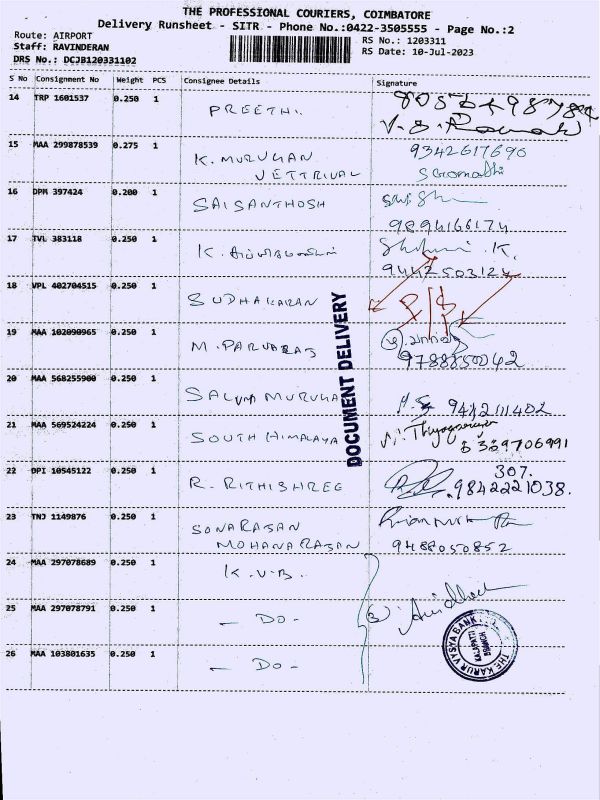 THE PROFESSIONAL COURIERS, COIMBATORE
Delivery Runsheet - SITR - Phone No.:0422-3505555 - Page No.:2
Route: AIRPORT
Staff: RAVINDERAN
DRS No.: DCJB120331102
RS No.: 1203311
RS Date: 10-Jul-2023
S No Consignment No Weight PCS Consignee Details Signature
14 TRP 1601537 0.250 1 PREETHI.
15 MAA 299878539 0.275 1 K. MURUGAN VETTRIVAL 9342617690
16 DPM 397424 0.200 1 SAISANTHOSH 9894166174
17 TVL 383118 0.250 1 K. 9442503124
18 VPL 402704515 0.250 1 SUDHAKARAN
19 MAA 102090965 0.250 1 M. PARVARAJ 9788850042
20 MAA 568255900 0.250 1 9412111402
21 MAA 569524224 0.250 1 SOUTH HIMALAYA
22 DPI 10545122 0.250 1 R. RITHISHREE 307. 9842221038.
23 TNJ 1149876 0.250 1 SONARAJAN MOHANARAJAN 9488050852
24 MAA 297078689 0.250 1 K.V.B.
25 MAA 297078791 0.250 1 - DO -
26 MAA 103801635 0.250 1 - DO -
DOCUMENT DELIVERY
THE KARUR VYSYA BANK LTD.
KALAPATTI
BRANCH